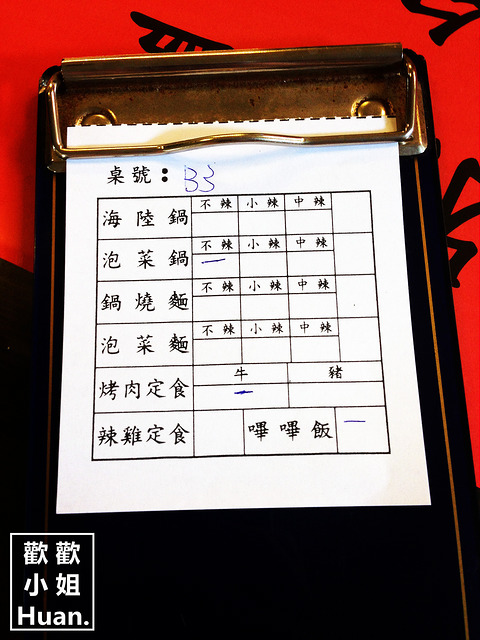 桌號：B3
海陸鍋 不辣 小辣 中辣
泡菜鍋 不辣 小辣 中辣
一
鍋燒麵 不辣 小辣 中辣
泡菜麵 不辣 小辣 中辣
烤肉定食 牛 豬
一
辣雞定食 嗶嗶飯 一
歡歡
小姐
Huan.